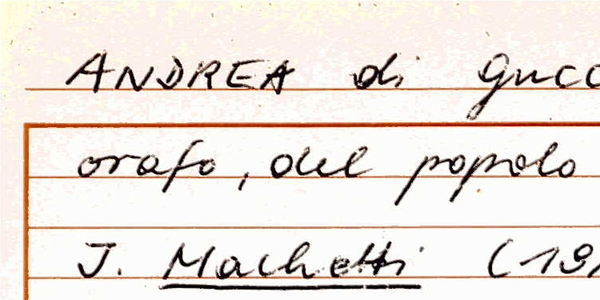 ANDREA di Gucc
orafo, del popolo
J. Machetti (19